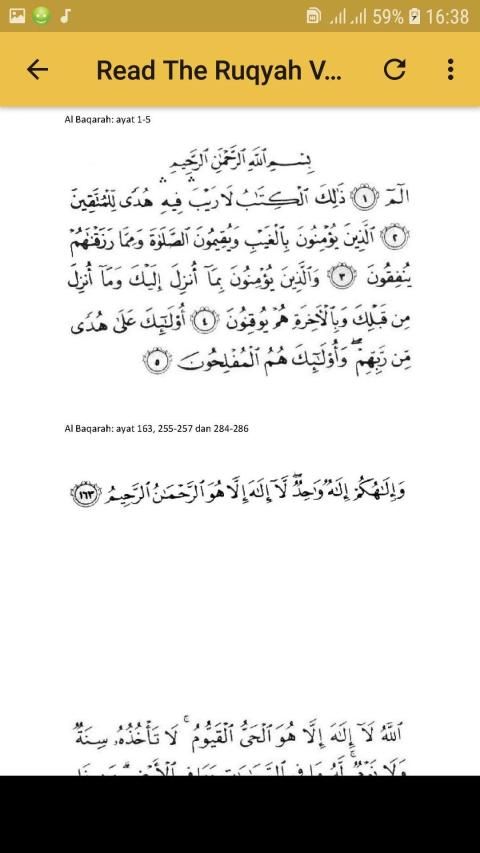 59% 16:38
Read The Ruqyah V...
Al Baqarah: ayat 1-5
بِسْمِ ٱللَّهِ ٱلرَّحْمَٰنِ ٱلرَّحِيمِ
الٓمٓ ١ ذَٰلِكَ ٱلْكِتَٰبُ لَا رَيْبَ ۛ فِيهِ ۛ هُدًى لِّلْمُتَّقِينَ
٢ ٱلَّذِينَ يُؤْمِنُونَ بِٱلْغَيْبِ وَيُقِيمُونَ ٱلصَّلَوٰةَ وَمِمَّا رَزَقْنَٰهُمْ
يُنفِقُونَ ٣ وَٱلَّذِينَ يُؤْمِنُونَ بِمَآ أُنزِلَ إِلَيْكَ وَمَآ أُنزِلَ
مِن قَبْلِكَ وَبِٱلْءَاخِرَةِ هُمْ يُوقِنُونَ ٤ أُو۟لَٰٓئِكَ عَلَىٰ هُدًى
مِّن رَّبِّهِمْ ۖ وَأُو۟لَٰٓئِكَ هُمُ ٱلْمُفْلِحُونَ ٥
Al Baqarah: ayat 163, 255-257 dan 284-286
وَإِلَٰهُكُمْ إِلَٰهٌ وَٰحِدٌ ۖ لَّآ إِلَٰهَ إِلَّا هُوَ ٱلرَّحْمَٰنُ ٱلرَّحِيمُ ١٦٣
ٱللَّهُ لَآ إِلَٰهَ إِلَّا هُوَ ٱلْحَىُّ ٱلْقَيُّومُ ۚ لَا تَأْخُذُهُۥ سِنَةٌ
وَلَا نَوْمٌ ۚ لَّهُۥ مَا فِى ٱلسَّمَٰوَٰتِ وَمَا فِى ٱلْأَرْضِ ۗ